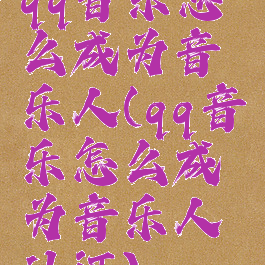 qq音乐怎
么成为音
乐人(qq音
乐怎么成
为音乐人
认证)